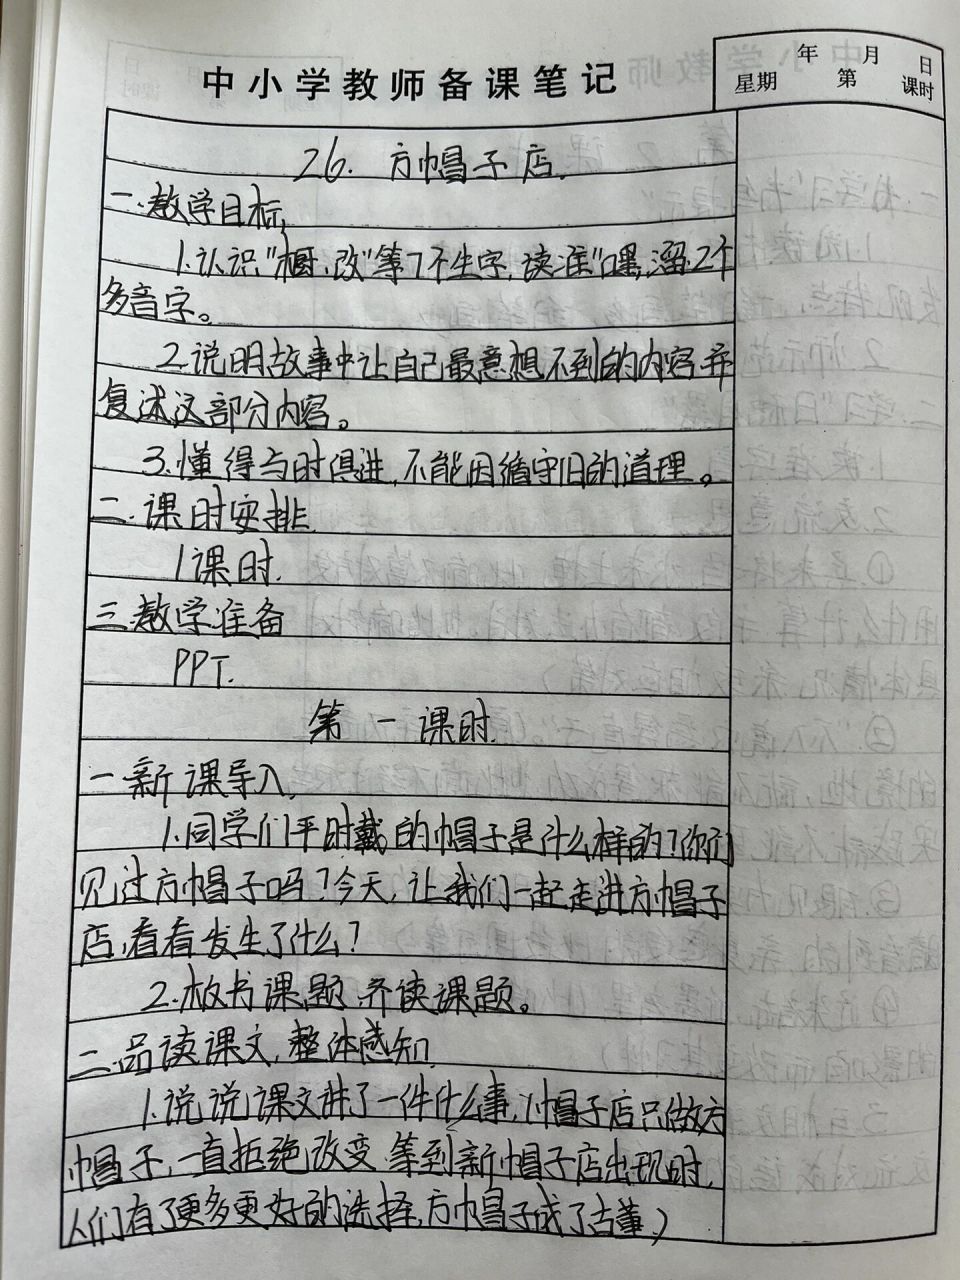 中小学教师备课笔记
年 月 日
星期 第 课时
26. 方帽子店.
一.教学目标.
1.认识"橱、改"等7个生字,读准"嘿,溜"2个
多音字。
2.说明故事中让自己最意想不到的内容并
复述这部分内容。
3.懂得与时俱进,不能因循守旧的道理。
二.课时安排.
1课时.
三.教学准备
PPT.
第一课时.
一新课导入.
1.同学们平时戴的帽子是什么样的?你们
见过方帽子吗?今天,让我们一起走进方帽子
店,看看发生了什么?
2.板书课题 齐读课题。
二.品读课文,整体感知.
1.说说课文讲了一件什么事,(帽子店只做方
帽子,一直拒绝改变 等到新帽子店出现时,
人们有了更多更好的选择,方帽子成了古董)